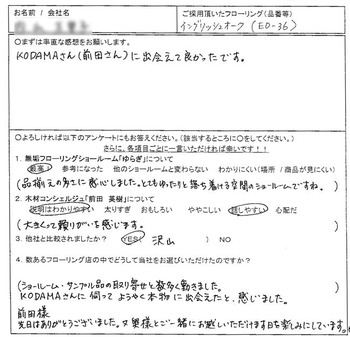 お名前 / 会社名
ご採用頂いたフローリング(品番等)
イングリッシュオーク (EO-36)
○まずは率直な感想をお願いします。
KODAMAさん(前田さん)に出会えて良かったです。
○よろしければ以下のアンケートにもお答えください。(該当するところに○をしてください。)
さらに、各項目ごとに一言いただければ幸いです!!
1. 無垢フローリングショールーム「ゆらぎ」について
最高! 参考になった 他のショールームと変わらない わかりにくい(場所 / 商品が見にくい)
(品揃えの多さに感心しました。とてもゆったりと落ち着ける空間のショールームですね。)
2. 木材コンシェルジュ「前田 英樹」について
説明はわかりやすい 太りすぎ おもしろい ややこしい 話しやすい 心配だ
(大きくって頼りがいを感じます。)
3. 他社と比較されましたか? YES( 沢山 ) NO
4. 数あるフローリング店の中でどうして当社をお選びいただけたのですか?
(ショールーム・サンプル品の取り寄せと数多く動きました。
KODAMAに伺ってようやく本物に出会えたと、感じました。
前田様
先日はありがとうございました。又奥様とご一緒にお越しいただけます日を楽しみにしています。)